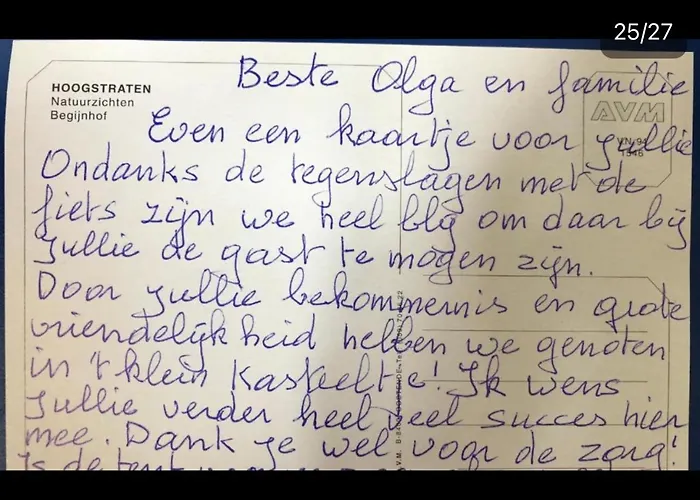 25/27
HOOGSTRATEN
Natuurzichten
Begijnhof
AVM
Beste Olga en familie
Even een kaartje voor jullie
Ondanks de tegenslagen met de
fiets zijn we heel blij om daar bij
jullie de gast te mogen zijn.
Door jullie bekommernis en grote
vriendelijkheid hebben we genoten
in 't klein kasteeltje! Ik wens
jullie verder heel veel succes hier
mee. Dank je wel voor de zorg!
Is de tent